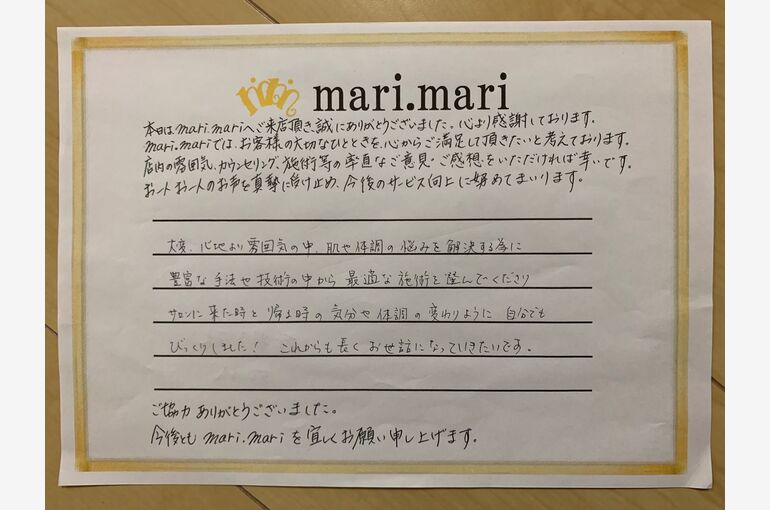 mari.mari
本日はmari.mariへご来店頂き誠にありがとうございました。心より感謝しております。
mari.mariでは、お客様の大切なひとときを、心からご満足して頂きたいと考えております。
店内の雰囲気、カウンセリング、施術等の率直なご意見・ご感想をいただければ幸いです。
お一人お一人のお声を真摯に受け止め、今後のサービス向上に努めてまいります。
大変、心地より雰囲気の中、肌や体調の悩みを解決する為に
豊富な手法や技術の中から最適な施術を選んでくださり
サロンに来た時と帰る時の気分や体調の変わりように自分でも
びっくりしました! これからも長くお世話になっていきたいです。
ご協力ありがとうございました。
今後ともmari.mariを宜しくお願い申し上げます。